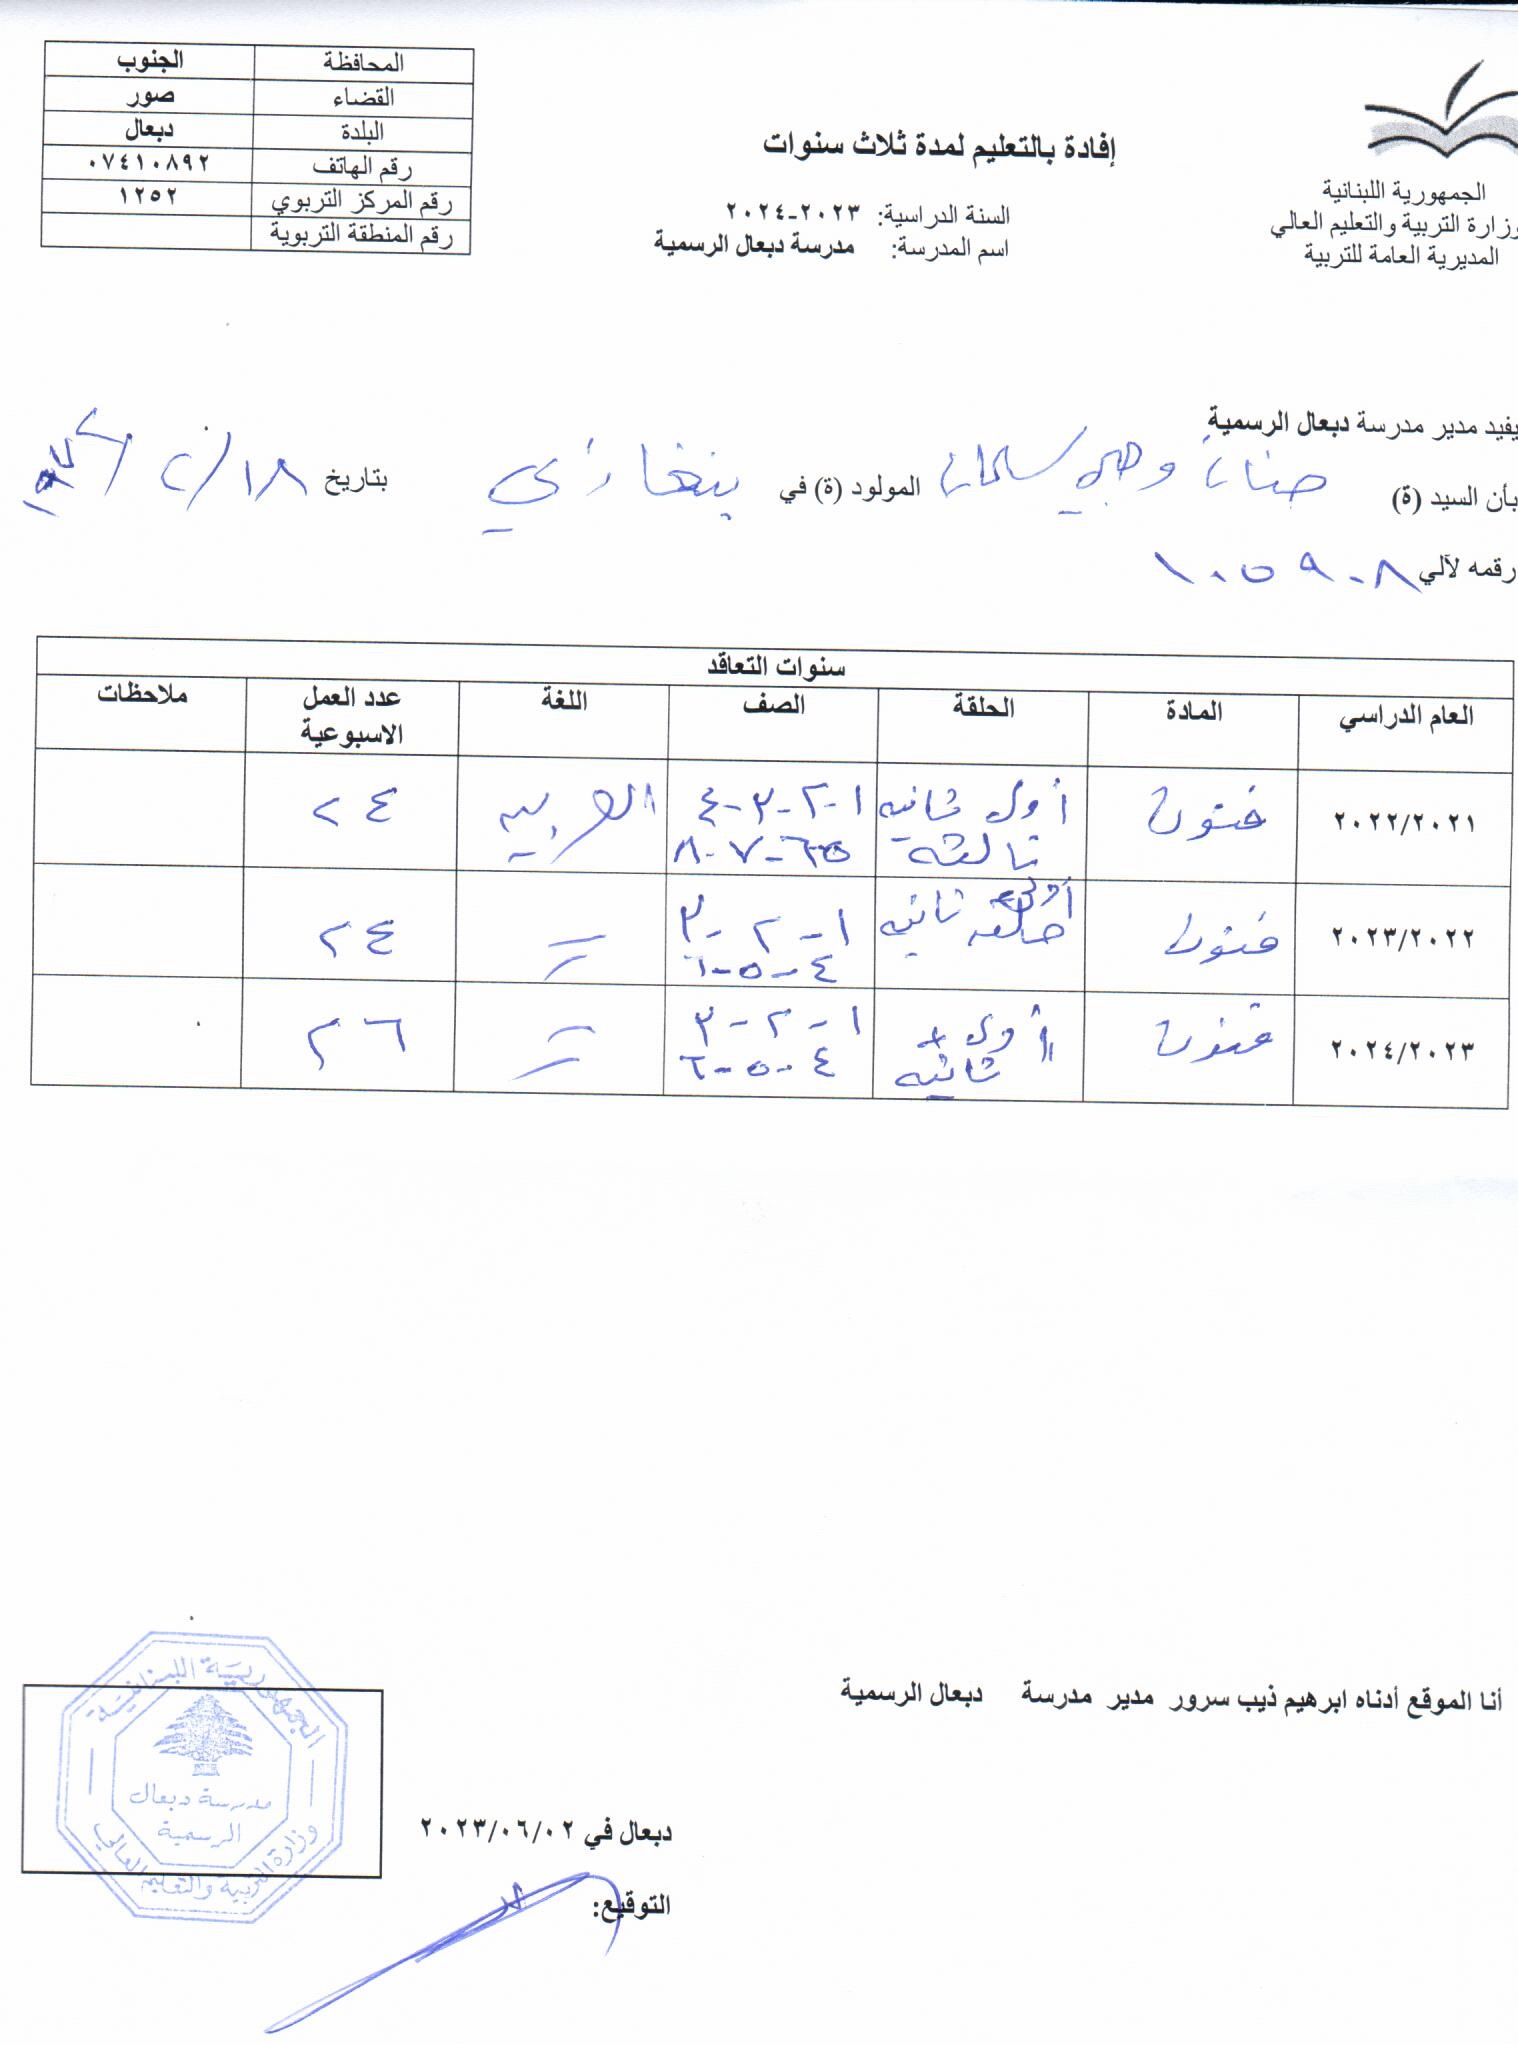 الجمهورية اللبنانية
وزارة التربية والتعليم العالي
المديرية العامة للتربية
إفادة بالتعليم لمدة ثلاث سنوات
السنة الدراسية: ٢٠٢٣-٢٠٢٤
اسم المدرسة: مدرسة دبعال الرسمية
المحافظة الجنوب
القضاء صور
البلدة دبعال
رقم الهاتف ٠٧٤١٠٨٩٢
رقم المركز التربوي ١٢٥٢
رقم المنطقة التربوية
يفيد مدير مدرسة دبعال الرسمية
بأن السيد (ة) حنان وهبي سلمان المولود (ة) في بنغازي بتاريخ ١٨/٢/
رقمه لآلي ١٠٥٩٠٨
سنوات التعاقد
العام الدراسي المادة الحلقة الصف اللغة عدد العمل الاسبوعية ملاحظات
٢٠٢٢/٢٠٢١ فنون أولى ثانية ثالثة ١-٢-٣-٤ ٥-٦-٧-٨ العربية ٢٤
٢٠٢٣/٢٠٢٢ فنون أولى حلقة ثانية ١-٢-٣ ٤-٥-٦ = ٢٤
٢٠٢٤/٢٠٢٣ فنون أولى + ثانية ١-٢-٣ ٤-٥-٦ = ٢٦
أنا الموقع أدناه ابرهيم ذيب سرور مدير مدرسة دبعال الرسمية
دبعال في ٢٠٢٣/٠٦/٠٢
التوقيع:
الجمهورية اللبنانية
مدرسة دبعال
الرسمية
وزارة التربية والتعليم العالي